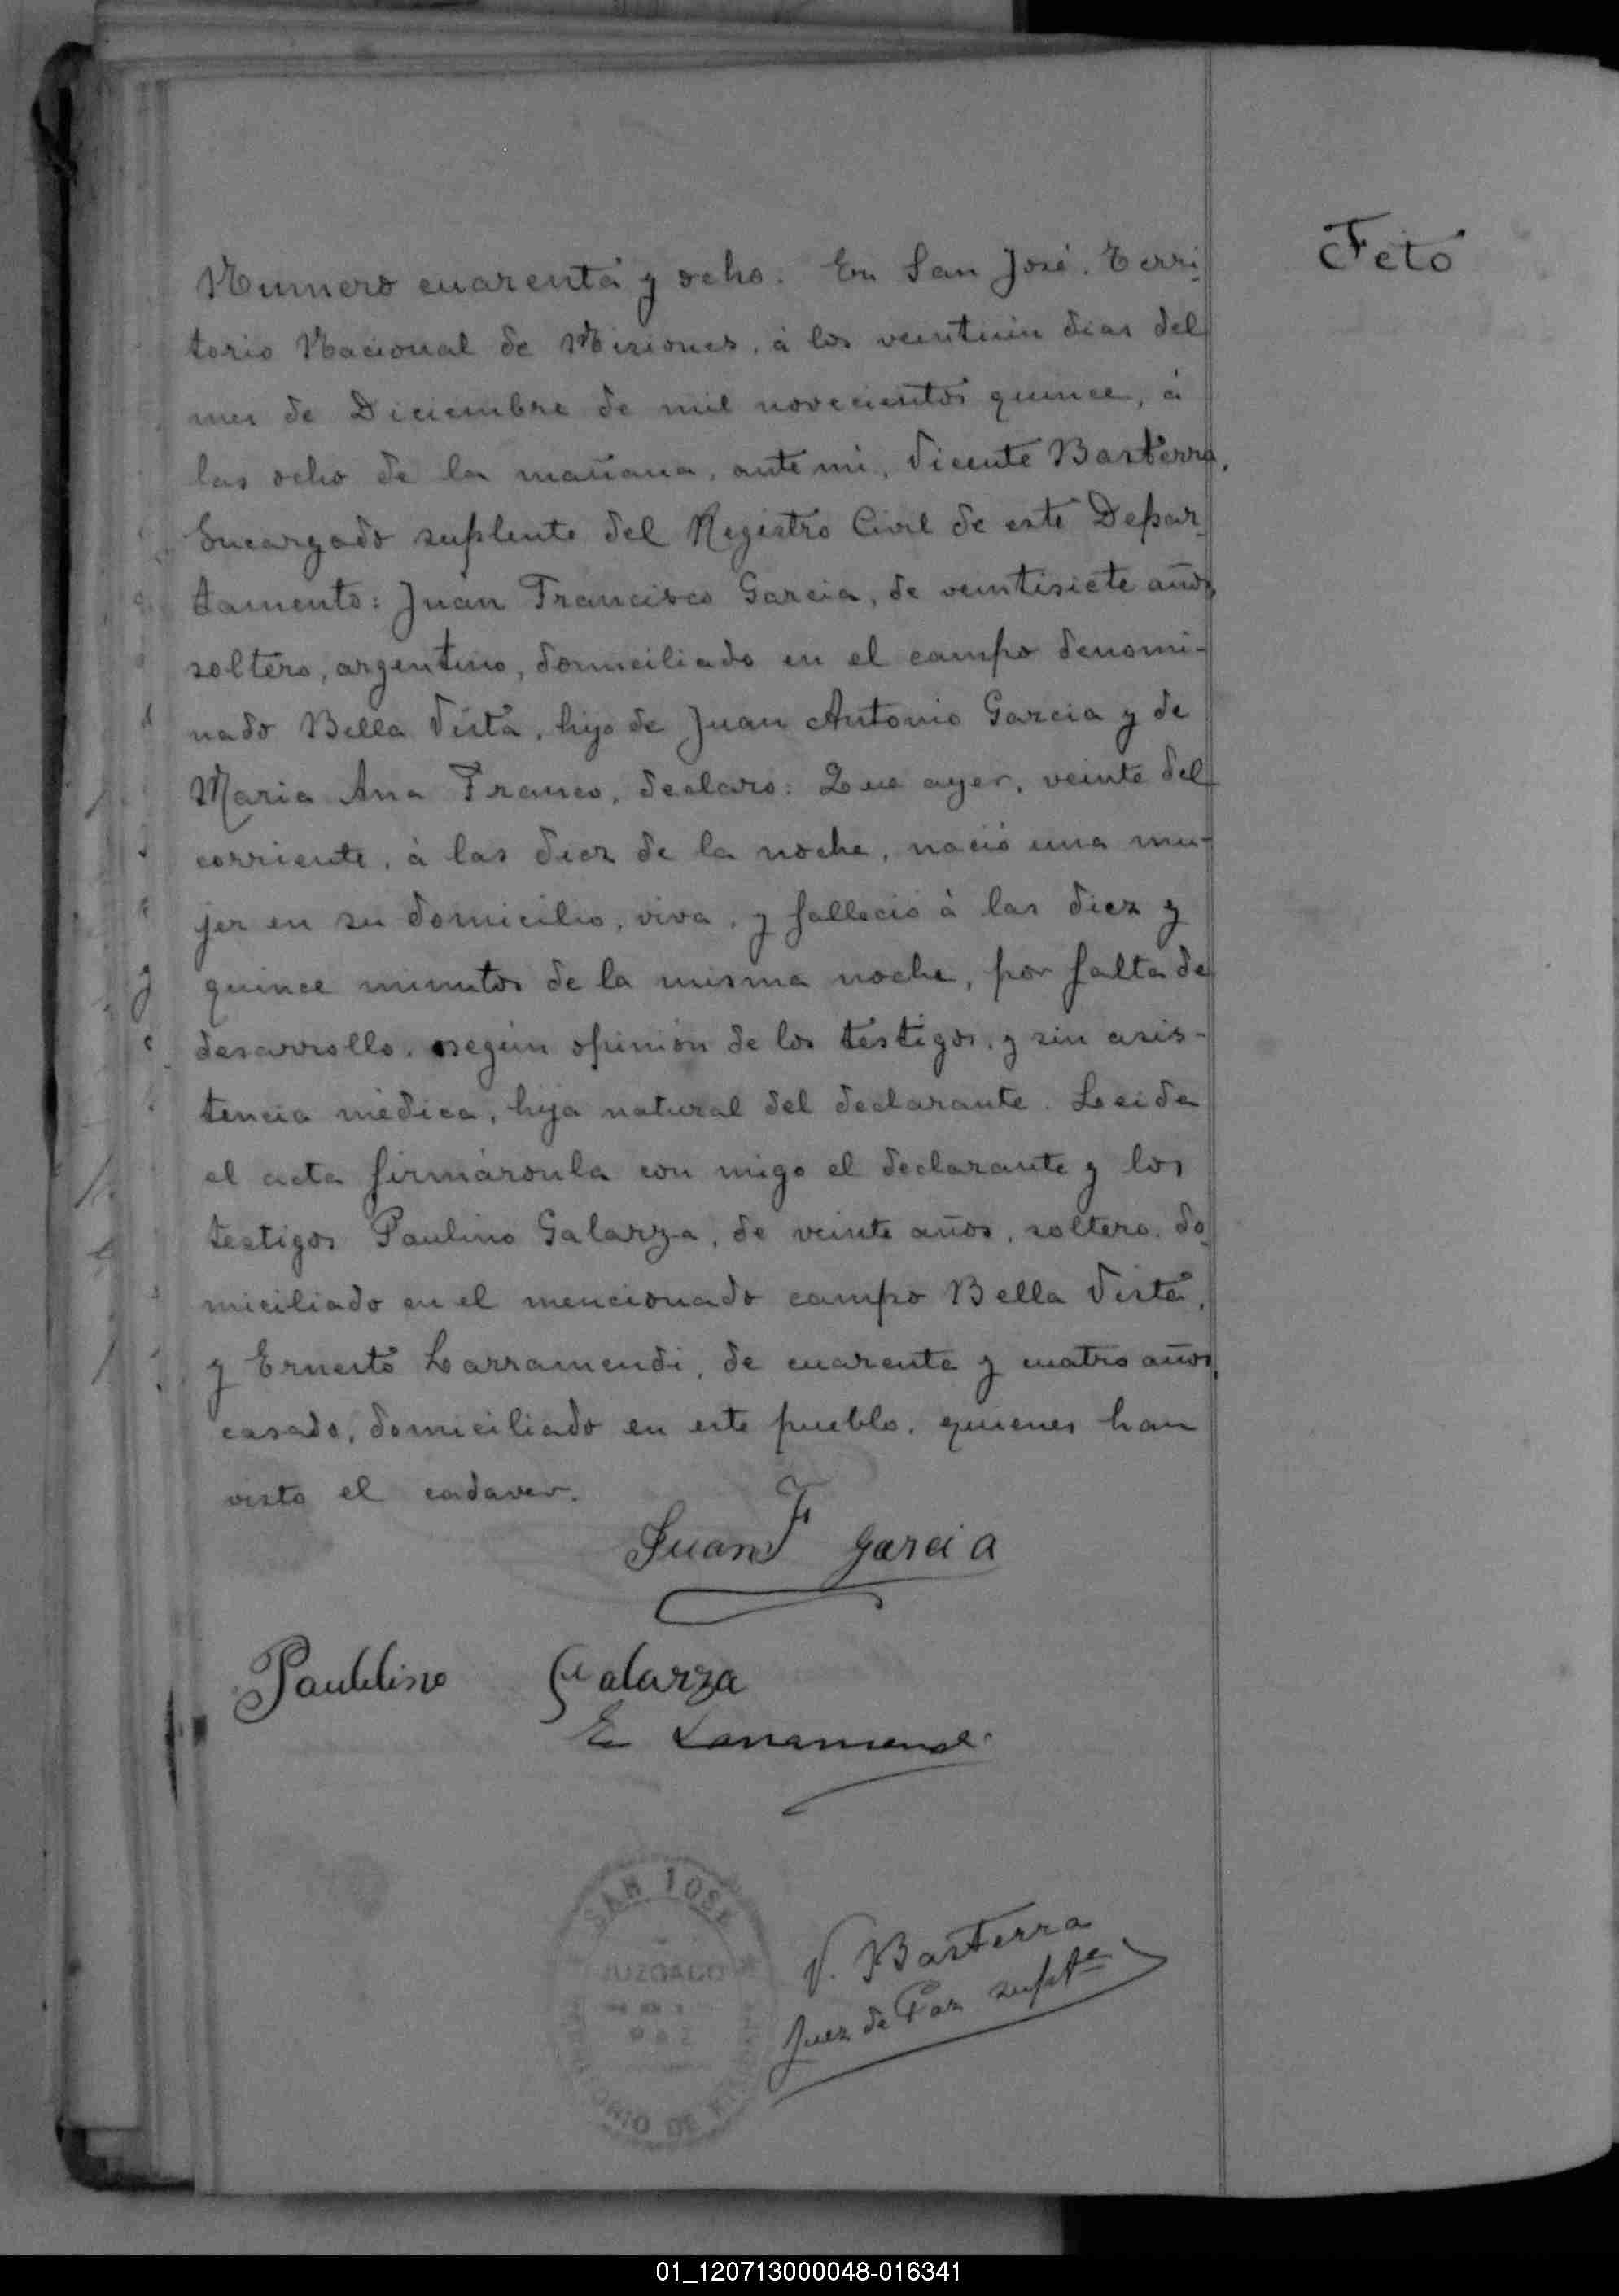 Feto
Numero cuarenta y ocho. En San José. Terri
torio Nacional de Misiones, á los veintiun dias del
mes de Diciembre de mil novecientos quince, á
las ocho de la mañana, ante mi, Vicente Basterra,
Encargado suplente del Registro Civil de este Depar
tamento: Juan Francisco Garcia, de veintisiete años,
soltero, argentino, domiciliado en el campo denomi-
nado Bella Vista, hijo de Juan Antonio Garcia y de
Maria Ana Franco, declaro: Que ayer, veinte del
corriente, á las diez de la noche, nació una mu-
jer en su domicilio, viva, y falleció á las diez y
quince minutos de la misma noche, por falta de
desarrollo, según opinión de los testigos, y sin asis-
tencia médica, hija natural del declarante. Leida
el acta firmáronla con migo el declarante y los
testigos Paulino Galarza, de veinte años, soltero, do
miciliado en el mencionado campo Bella Vista,
y Ernesto Larramendi, de cuarenta y cuatro años,
casado, domiciliado en este pueblo, quienes han
visto el cadaver.
Juan F Garcia
Paulino Galarza
E Larramendi
SAN JOSE
JUZGADO
DE
PAZ
TERRITORIO DE MISIONES
V. Basterra
Juez de Paz supte
01_120713000048-016341